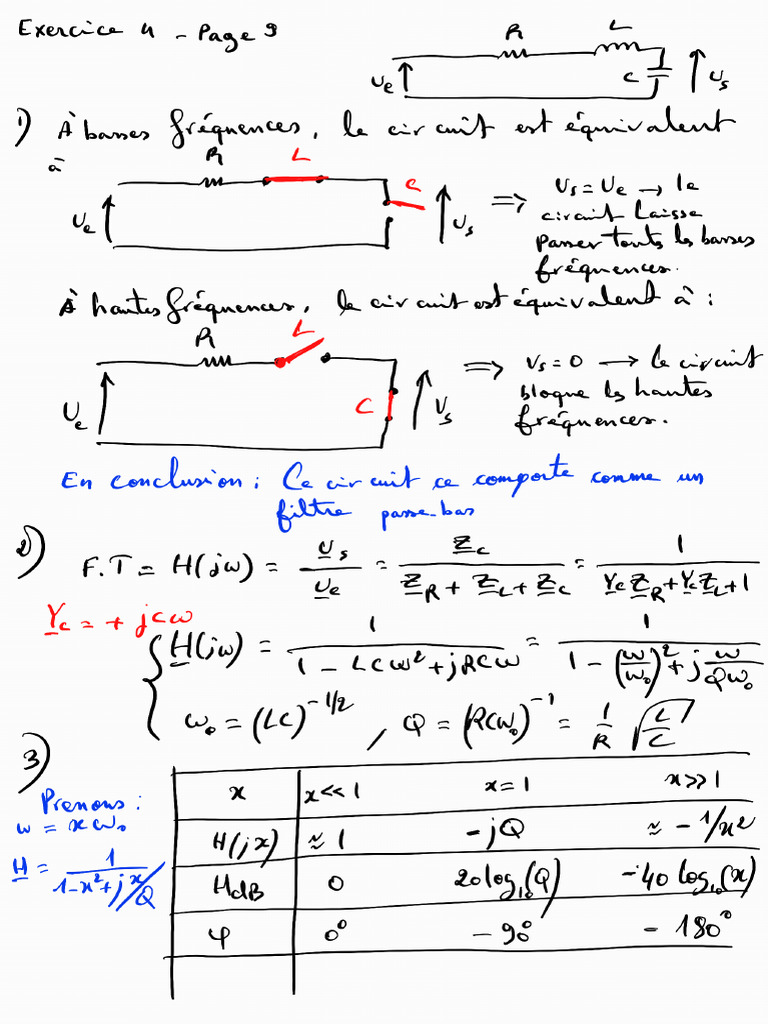 Exercice 4 - Page 9
R L
Ue C Us
1) À basses fréquences, le circuit est équivalent
à
R L C
Ue Us ⟹ Us = Ue → le
circuit laisse
passer touts les basses
fréquences.
À hautes fréquences, le circuit est équivalent à :
R L
Ue C Vs ⟹ Vs = 0 → le circuit
bloque les hautes
fréquences.
En conclusion : Ce circuit ce comporte comme un
filtre passe-bas
2) F.T = H(jω) = Us/Ue = Zc/(ZR + ZL + Zc) = 1/(YcZR + YcZL + 1)
Yc = + jCω
H(jω) = 1/(1 - LCω² + jRCω) = 1/(1 - (ω/ω₀)² + j ω/(Qω₀))
ω₀ = (LC)^(-1/2) , Q = (RCω₀)^(-1) = 1/R √(L/C)
3)
Prenons :
ω = xω₀
H = 1/(1 - x² + j x/Q)
x x<<1 x=1 x>>1
H(jx) ≈ 1 -jQ ≈ -1/x²
HdB 0 20log₁₀(Q) -40 log₁₀(x)
φ 0° -90° -180°